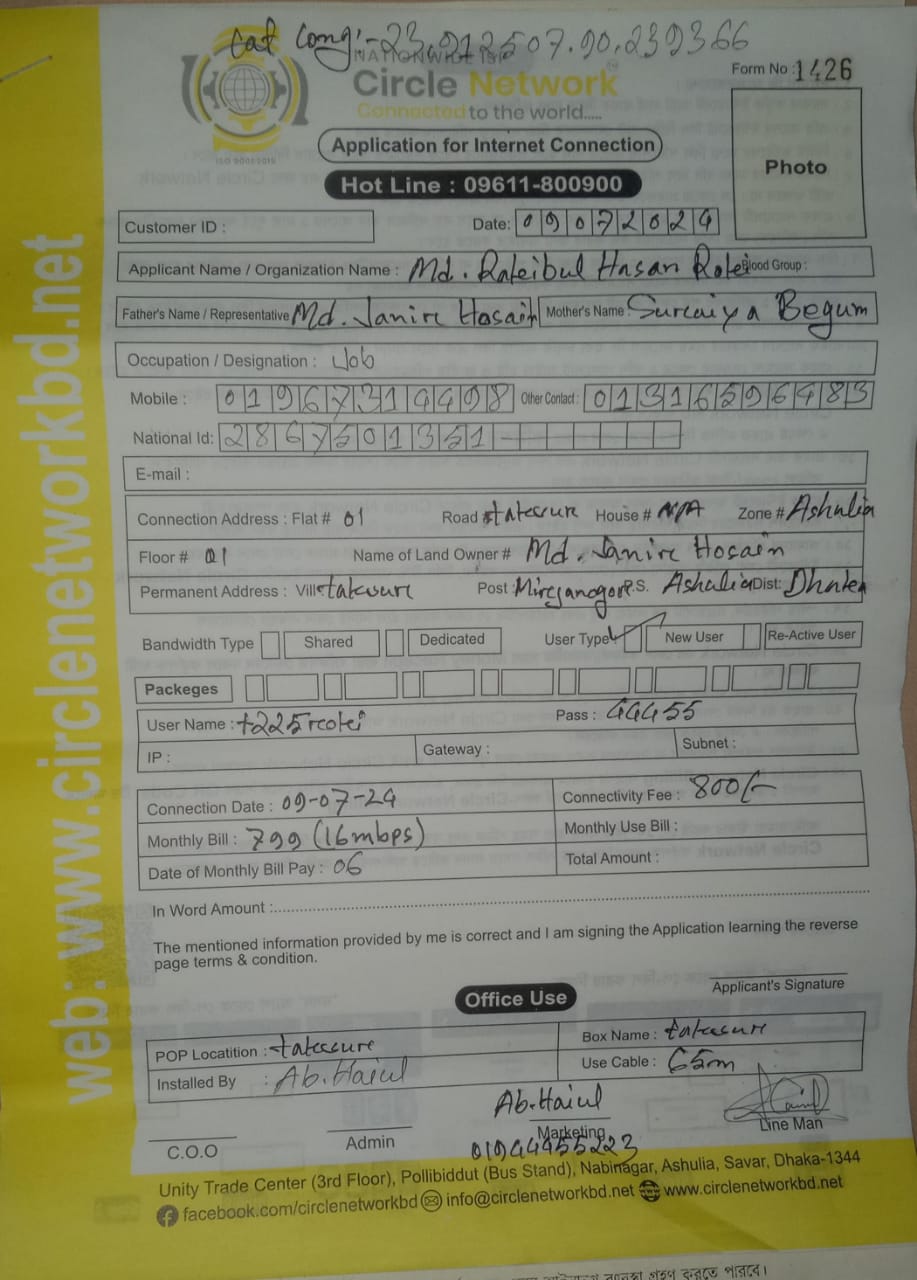 Lat Long:-23.912507.90.239366
NATIONWIDE ISP
Circle Network
Connected to the world.....
ISO 9001:2015
Form No : 1426
Photo
Application for Internet Connection
Hot Line : 09611-800900
Customer ID :
Date: 09072024
Applicant Name / Organization Name : Md. Rakibul Hasan Blood Group :
Father's Name / Representative Md. Hosain Mother's Name : Suraiya Begum
Occupation / Designation : Job
Mobile : 01967314498 Other Contact : 01316596483
National Id: 2867501351
E-mail :
Connection Address : Flat # 01 Road House # N/A Zone # Ashulia
Floor # 01 Name of Land Owner # Md. Hosain
Permanent Address : Vill: Post : P.S. Ashulia Dist: Dhaka
Bandwidth Type Shared Dedicated User Type New User Re-Active User
Packeges
User Name : Pass : 44455
IP : Gateway : Subnet :
Connection Date : 09-07-24 Connectivity Fee : 800/-
Monthly Bill : 799 (16mbps) Monthly Use Bill :
Date of Monthly Bill Pay : 06 Total Amount :
In Word Amount :
The mentioned information provided by me is correct and I am signing the Application learning the reverse
page terms & condition.
Applicant's Signature
Office Use
POP Locatition : Box Name :
Installed By : Ab. Haiul Use Cable : 65m
Ab. Haiul
C.O.O Admin Marketing Line Man
01944455223
Unity Trade Center (3rd Floor), Pollibiddut (Bus Stand), Nabinagar, Ashulia, Savar, Dhaka-1344
facebook.com/circlenetworkbd info@circlenetworkbd.net www.circlenetworkbd.net
web: www.circlenetworkbd.net
গ্রহণ করতে পারবে।